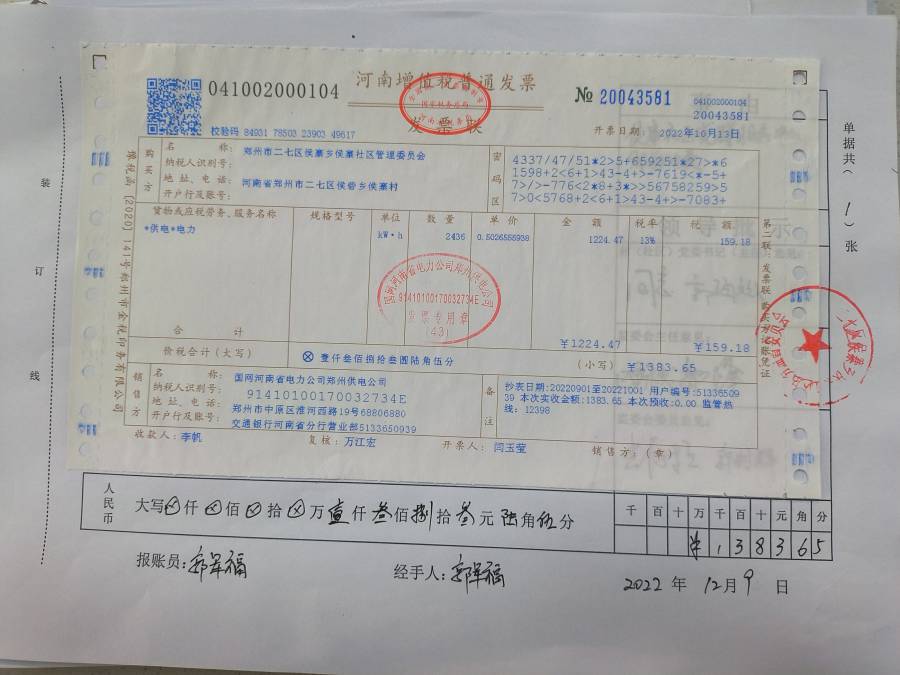 041002000104
河南增值税普通发票
№ 20043581
041002000104
20043581
发票联
校验码 84931 78503 23903 49617
开票日期: 2022年10月13日
购买方
名 称: 郑州市二七区侯寨乡侯寨社区管理委员会
纳税人识别号:
地 址、电 话: 河南省郑州市二七区侯砦乡侯寨村
开户行及账号:
密码区
4337/47/51*2>5+659251*27>*6
1598+2<6+1>43-4+>-7619<*-5+
7>/>-776<2*8+3*>>56758259>5
7>0<5768+2<6+1>43-4+>-7083+
货物或应税劳务、服务名称 规格型号 单位 数 量 单 价 金 额 税率 税 额
*供电*电力 kW·h 2436 0.5026556938 1224.47 13% 159.18
国网河南省电力公司郑州供电公司
91410100170032734E
发票专用章
(43)
合 计 ￥1224.47 ￥159.18
价税合计(大写) ⊗壹仟叁佰捌拾叁圆陆角伍分 (小写) ￥1383.65
销售方
名 称: 国网河南省电力公司郑州供电公司
纳税人识别号: 91410100170032734E
地 址、电 话: 郑州市中原区淮河西路19号68806880
开户行及账号: 交通银行河南省分行营业部5133650939
备注
抄表日期:20220901至20221001 用户编号:51336509
39 本次实收金额:1383.65 本次预收:0.00 监管热
线: 12398
收款人: 李帆 复核: 万江宏 开票人: 闫玉莹 销售方: (章)
第二联 发票联 购买方记账凭证
单据共( 1 )张
装
订
线
人民币
大写⊗仟⊗佰⊗拾⊗万壹仟叁佰捌拾叁元陆角伍分
千 百 十 万 千 百 十 元 角 分
￥ 1 3 8 3 6 5
报账员: 郭军福 经手人: 郭军福 2022 年 12 月 9 日